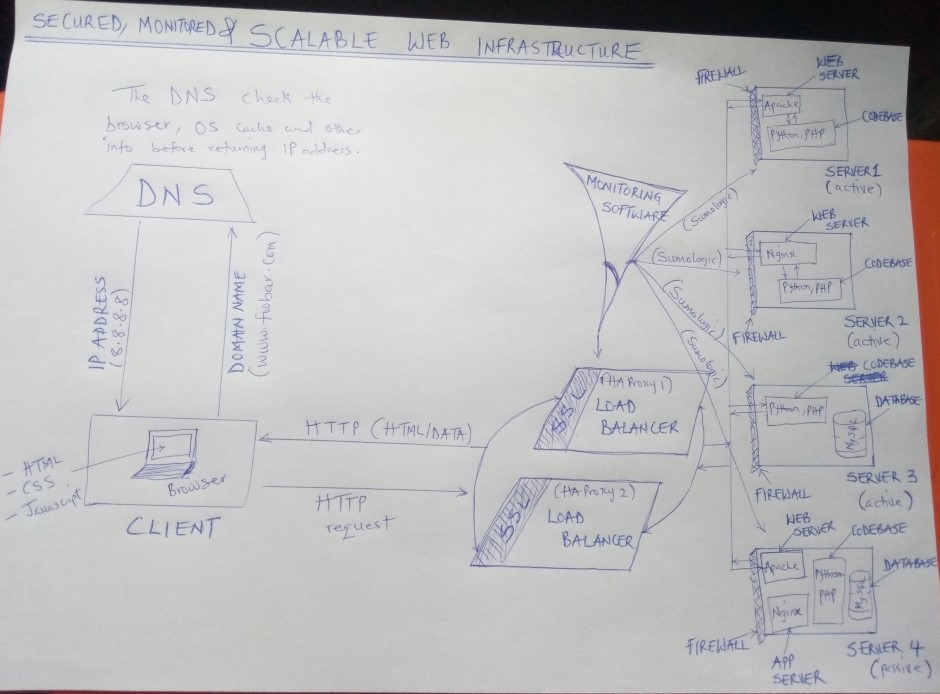 SECURED, MONITORED & SCALABLE WEB INFRASTRUCTURE
The DNS check the
browser, OS cache and other
info before returning IP address.
DNS
IP ADDRESS
(8.8.8.8)
DOMAIN NAME
(www.foobar.com)
- HTML
- CSS
- Javascript
Browser
CLIENT
HTTP (HTML/DATA)
HTTP
request
MONITORING
SOFTWARE
(Sumologic)
(Sumologic)
(Sumologic)
(Sumologic)
SSL
(HAProxy 1)
LOAD
BALANCER
SSL
(HAProxy 2)
LOAD
BALANCER
FIREWALL
WEB
SERVER
Apache
Python, PHP
CODEBASE
SERVER 1
(active)
WEB
SERVER
Nginx
Python, PHP
CODEBASE
FIREWALL
SERVER 2
(active)
WEB CODEBASE
SERVER
Python, PHP
DATABASE
MySQL
FIREWALL
SERVER 3
(active)
WEB
SERVER
CODEBASE
Apache
Python
PHP
DATABASE
MySQL
Nginx
FIREWALL
APP
SERVER
SERVER 4
(passive)